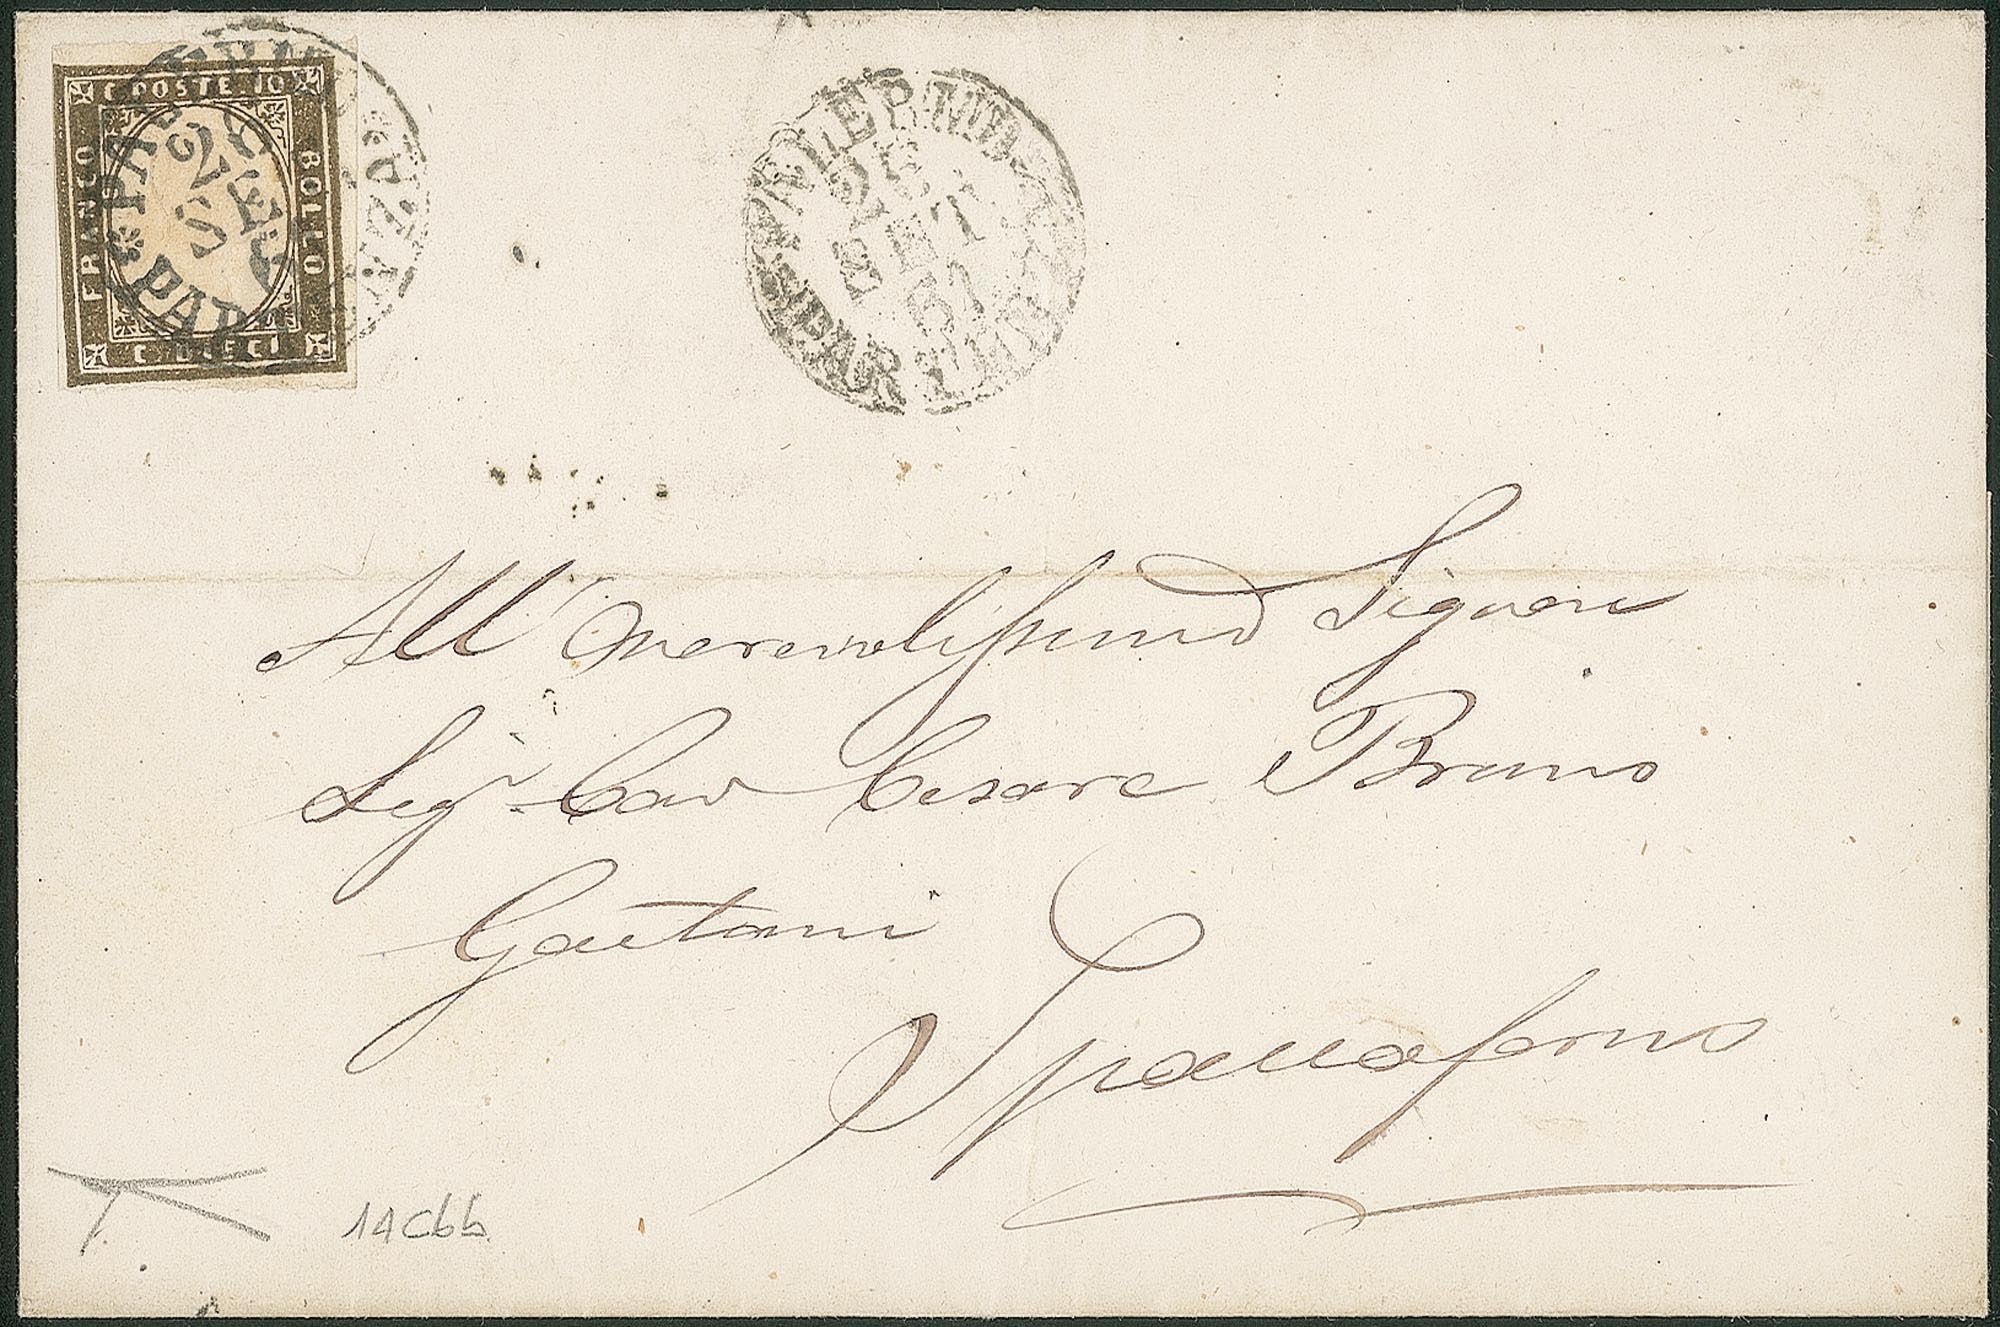 C. POSTE. 10
FRANCO
BOLLO
C. DIECI
PALERMO
26
SET
PARTENZA
PALERMO
26
SET
61
PARTENZA
All' Onorevolissimo Signore
Sigr. Cav Cesare Bruno
Gaetani
Spaccaforno
14Cbb